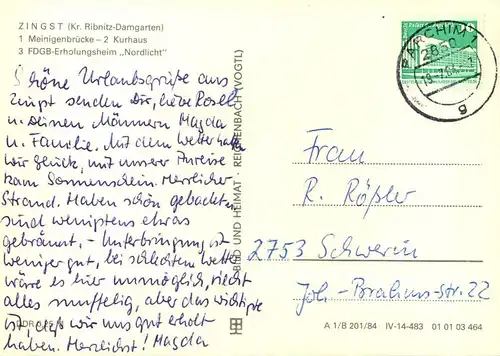 ZINGST (Kr. Ribnitz-Damgarten)
1 Meinigenbrücke – 2 Kurhaus
3 FDGB-Erholungsheim „Nordlicht"
Schöne Urlaubsgrüße aus
Zingst senden Dir, liebe Rosel
u. Deinen Männern Magda
u. Familie. Mit dem Wetter hatten
wir Glück, mit unserer Anreise
kam Sonnenschein. Herrlicher
Strand. Haben schön gebadet
sind wenigstens etwas
gebräunt. – Unterbringung ist
weniger gut, bei schlechtem Wetter
wäre es hier unmöglich, riecht
alles muffelig, aber das wichtigste
ist, daß wir uns gut erholt
haben. Herzlichst! Magda
BILD UND HEIMAT · REICHENBACH (VOGTL)
PARCHIM 1
2850
g
Frau
R. Rößler
2753 Schwerin
Joh.-Brahms-str. 22
A 1/B 201/84 IV-14-483 01 01 03 464